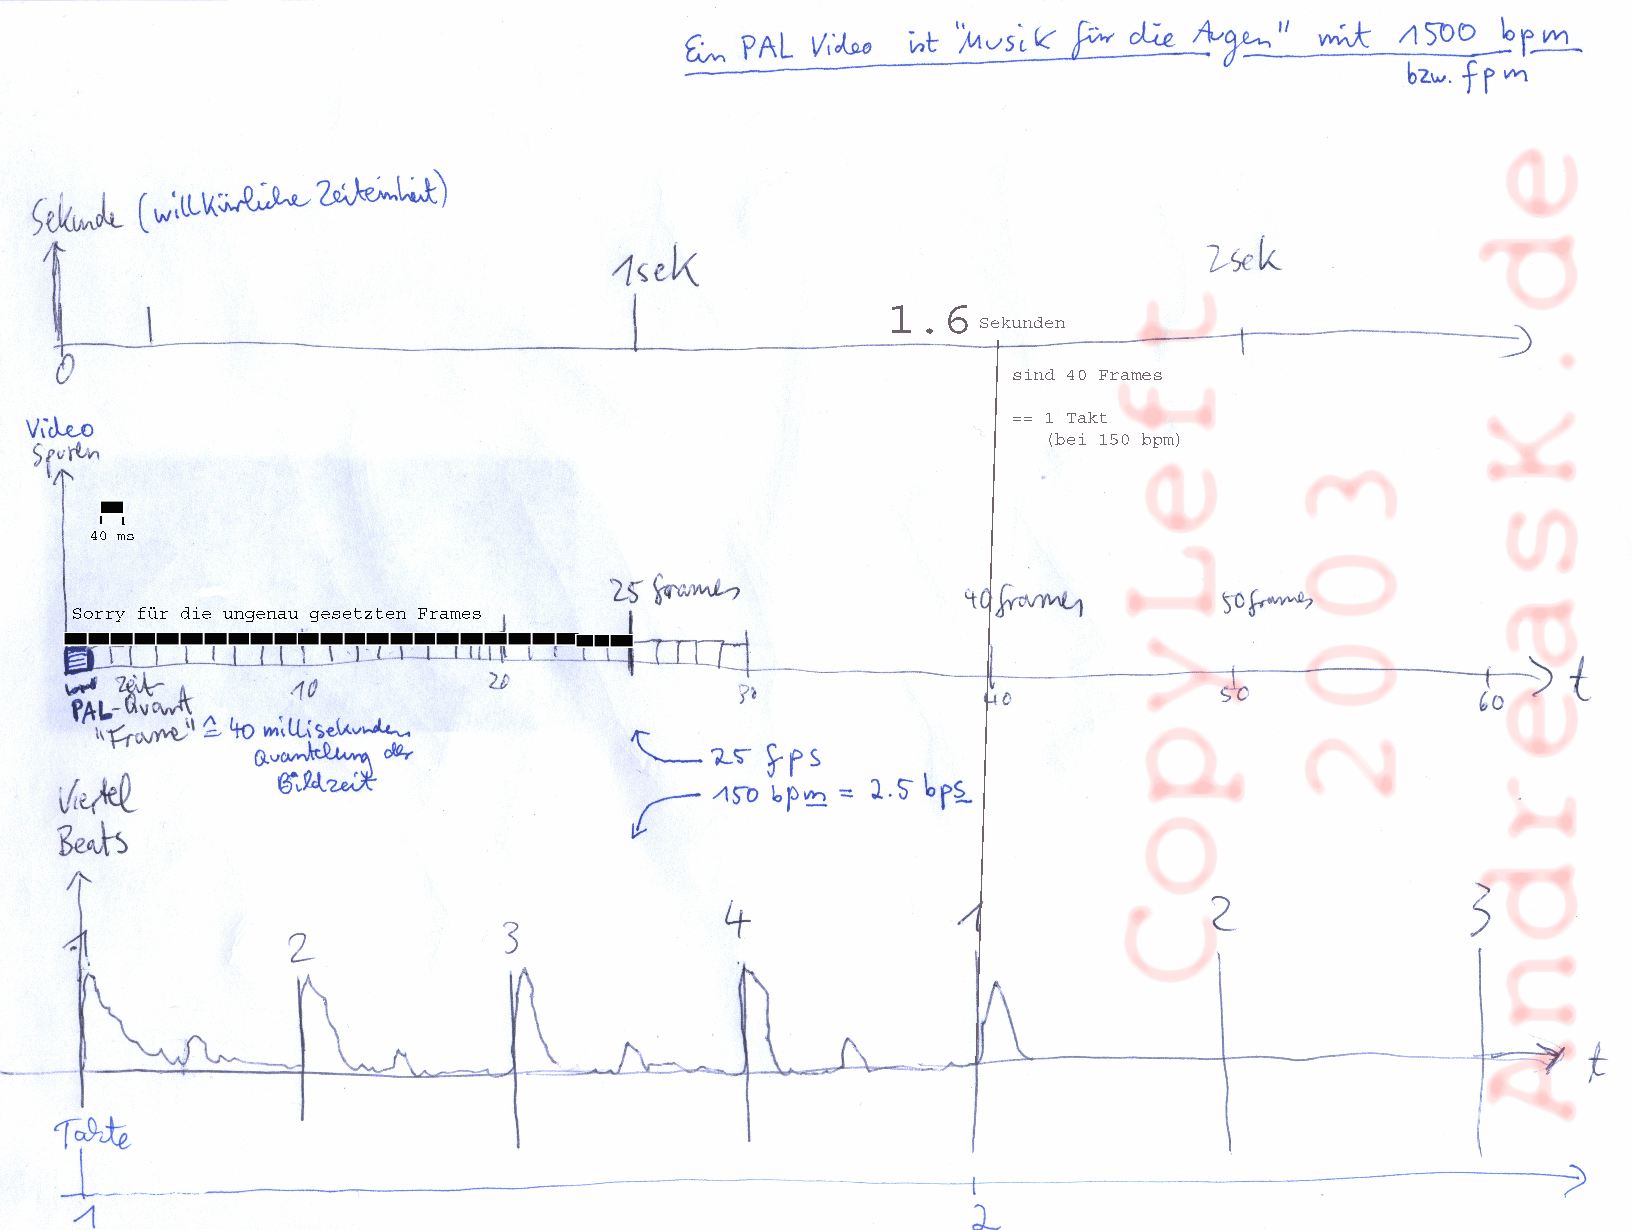 Ein PAL Video ist "Musik für die Augen" mit 1500 bpm
bzw. fpm
Sekunde (willkürliche Zeiteinheit)
1sek
2sek
1.6 Sekunden
0
sind 40 Frames
== 1 Takt
(bei 150 bpm)
Video
Spuren
40 ms
25 frames
40 frames
50 frames
Sorry für die ungenau gesetzten Frames
10
20
30
40
50
60
t
Zeit
PAL-Quant
"Frame" ≙ 40 millisekunden
Quantelung der
Bildzeit
25 fps
150 bpm = 2.5 bps
Viertel
Beats
1
2
3
4
1
2
3
t
Takte
1
2
CopyLeft
2003
AndreasK.de